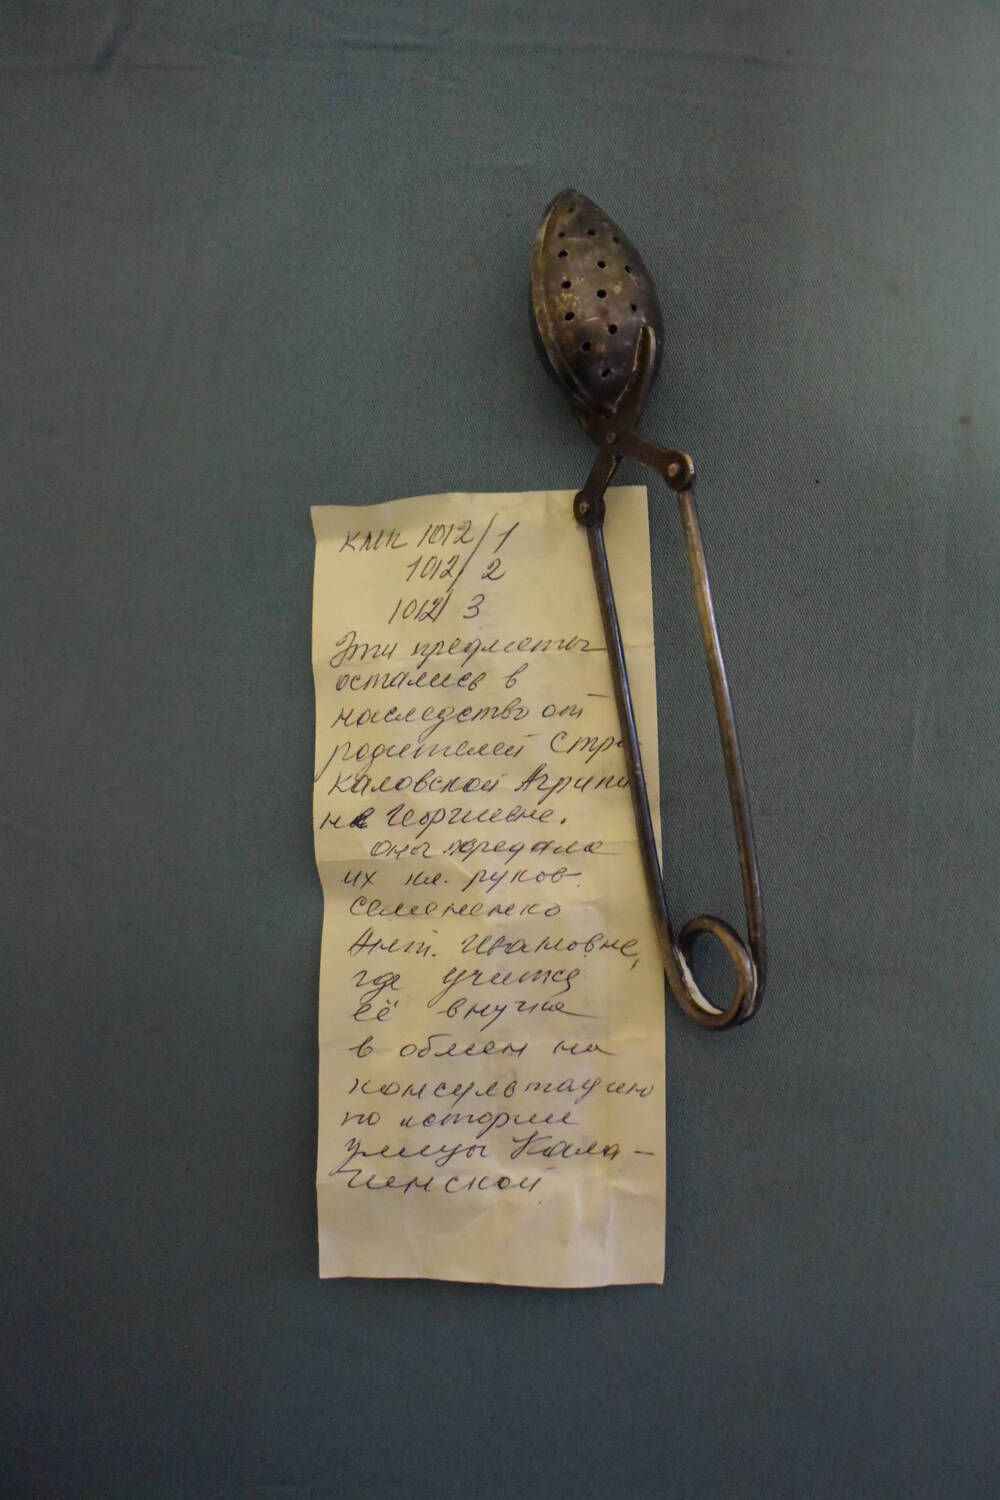 КМП 1012/1
1012/2
1012/3
Эти предметы
остались в
наследство от
родителей Стри-
каловской Агрипи
не Георгиевне.
она передала
их кл. руков.
Семененко
Ант. Ивановне,
где учится
её внучка
в обмен на
консультацию
по истории
улицы Кала-
чинской